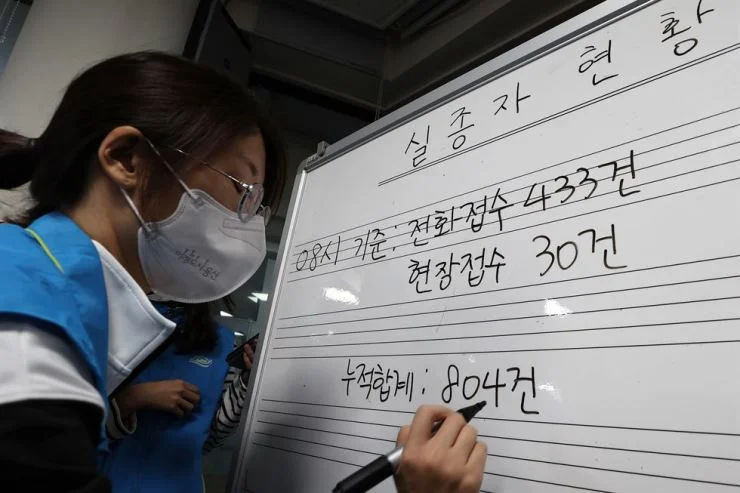 실종자 현황
08시 기준: 전화접수 433건
현장접수 30건
누적합계: 804건